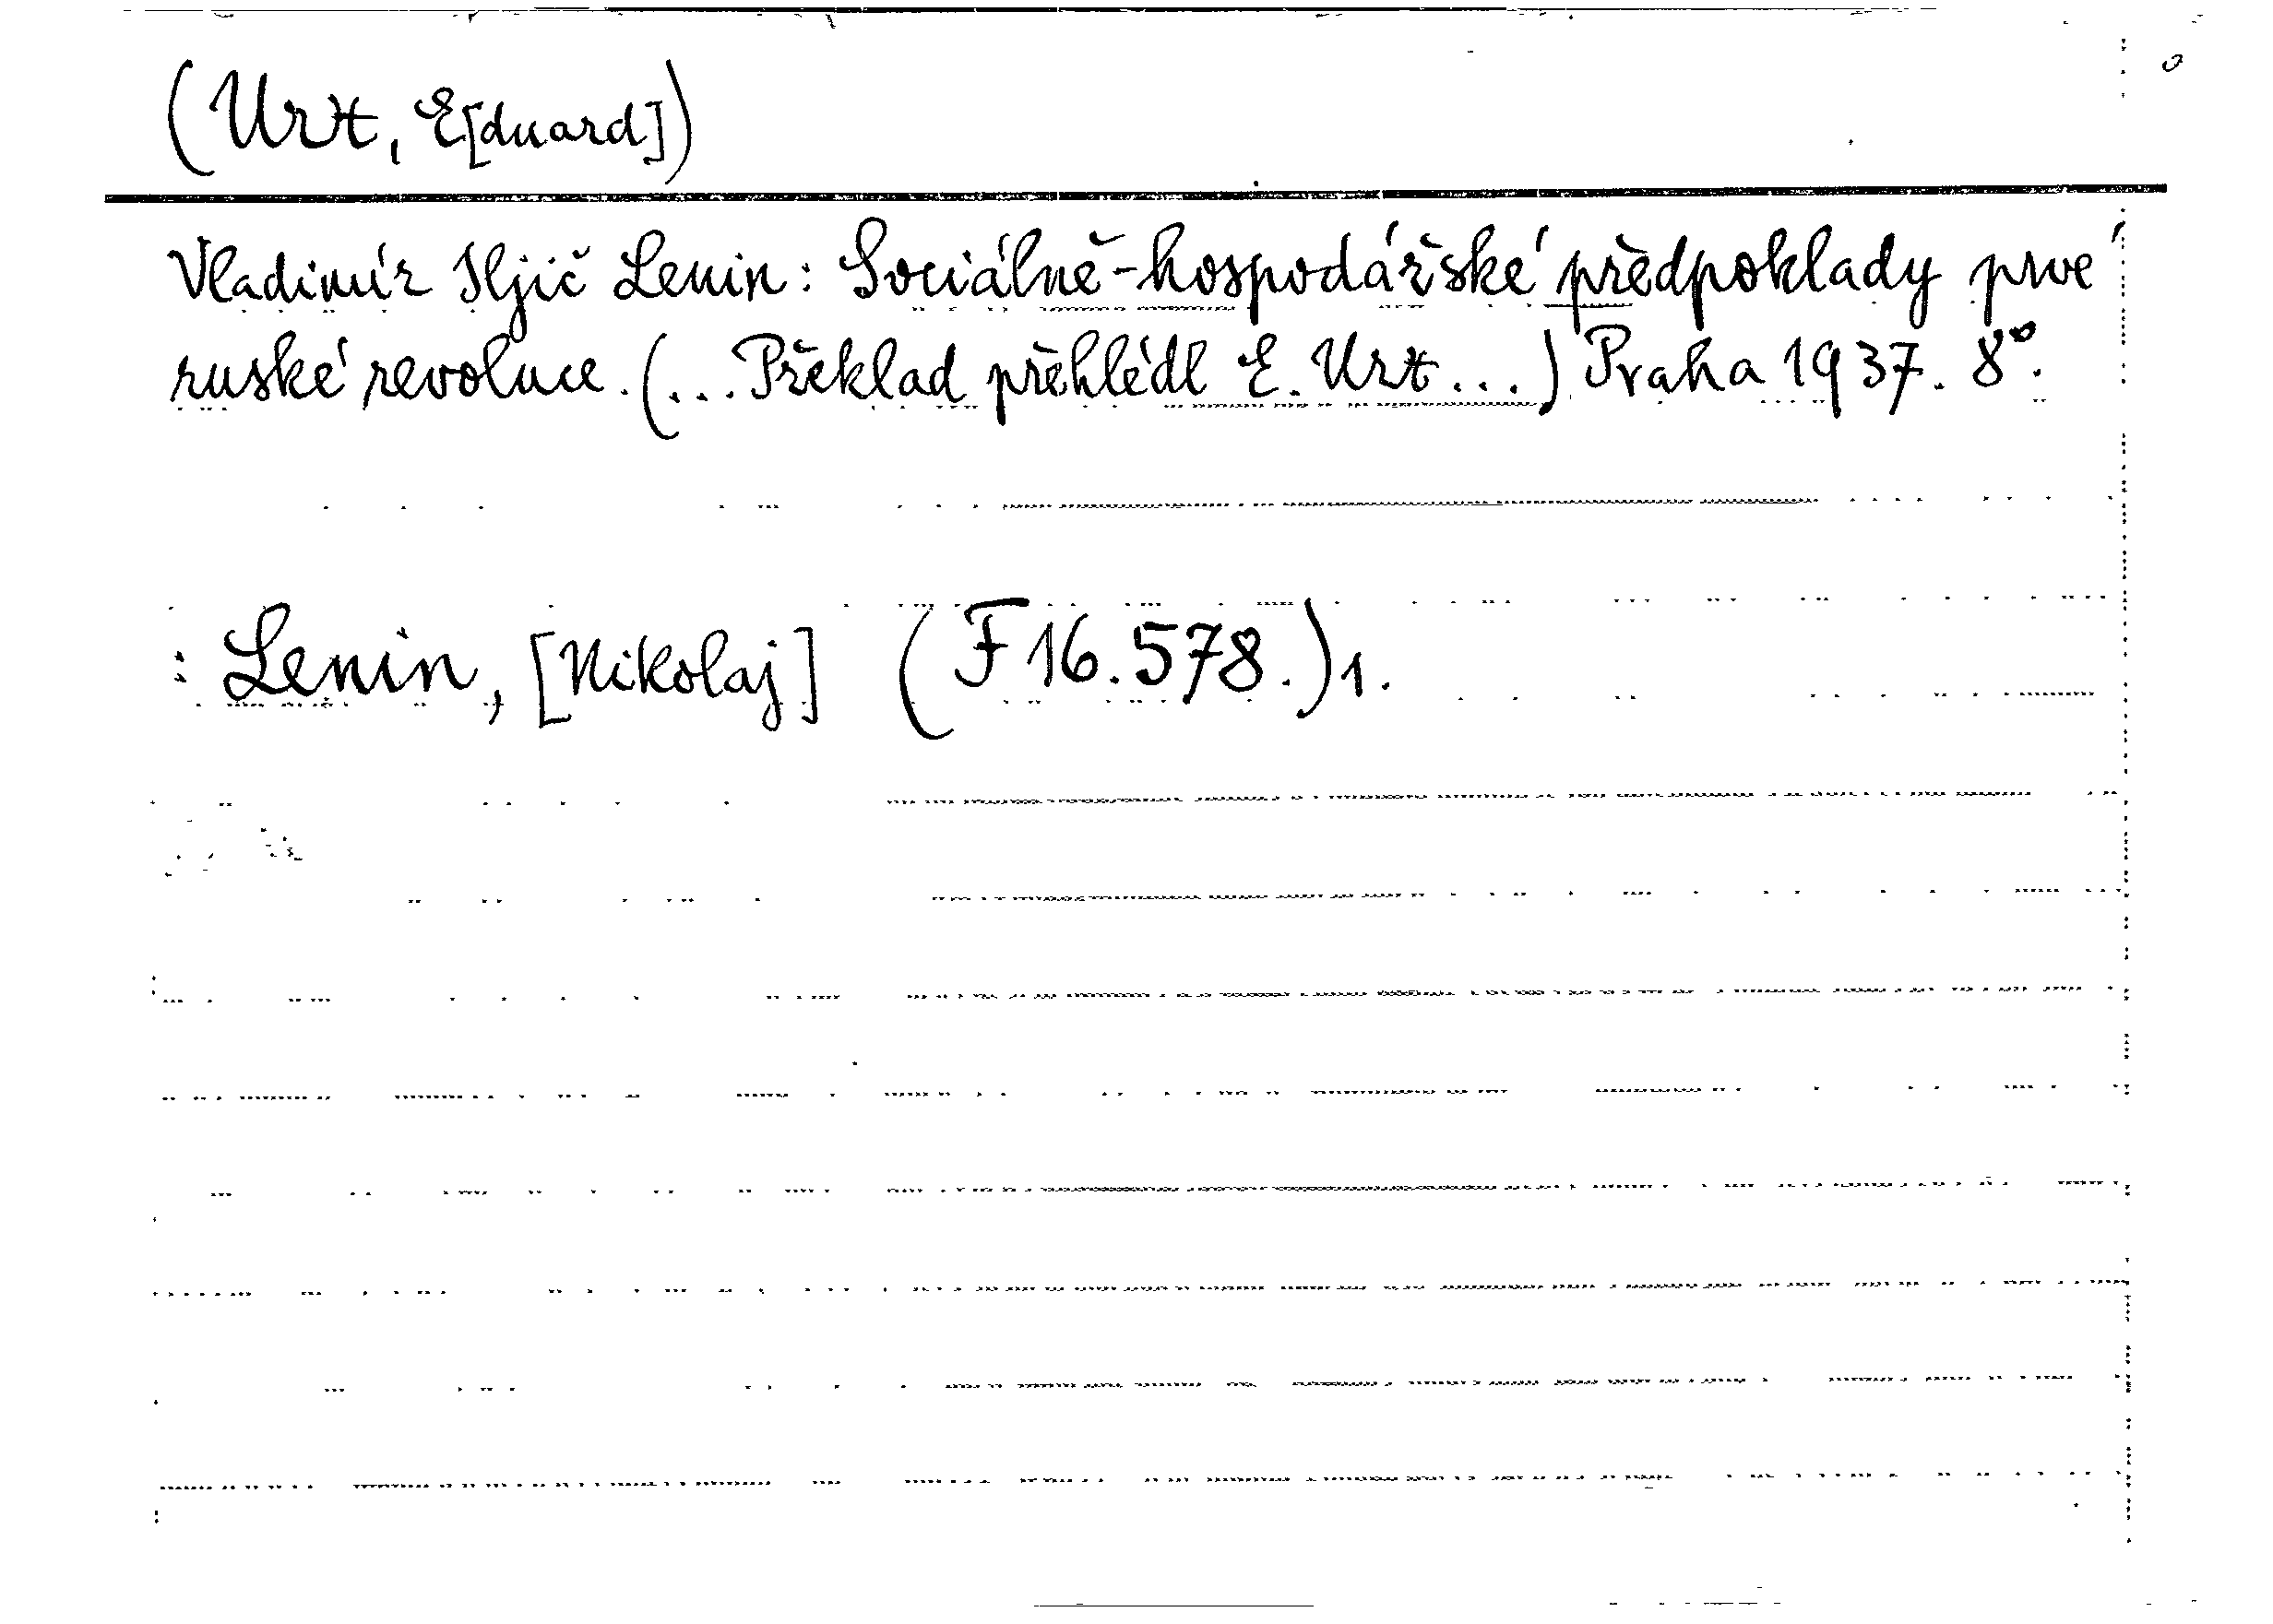 (Urx, E[duard])
Vladimír Iljič Lenin: Sociálně-hospodářské předpoklady prvé
ruské revoluce. (... Překlad přehlédl E. Urx...) Praha 1937. 8°.
: Lenin, [Nikolaj] (F 16.578.) 1.